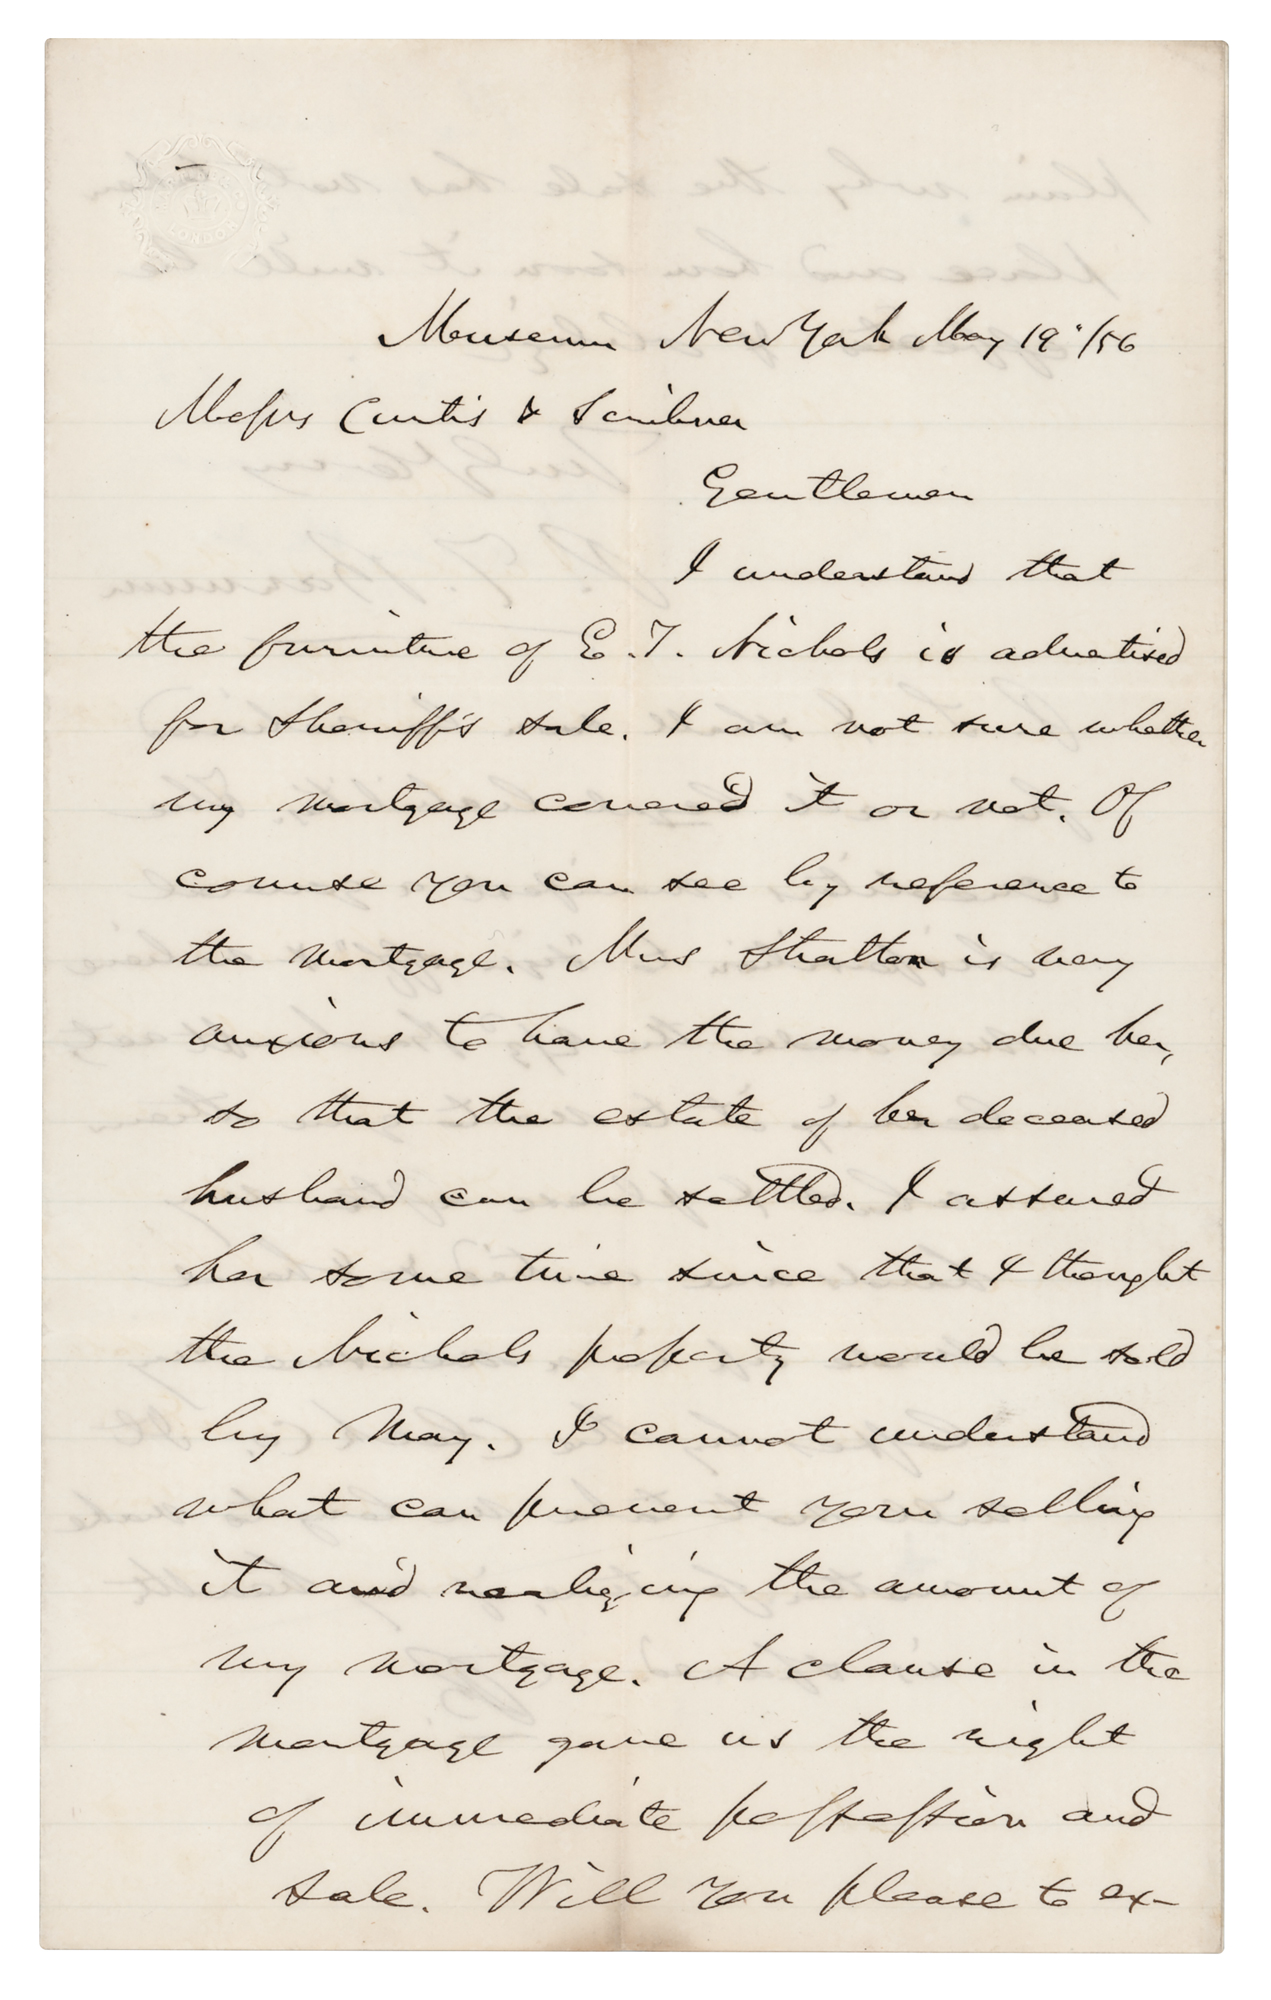 LONDON
Museum New York May 19 /56
Messrs Curtis & Scribner
Gentlemen
I understand that
the furniture of E. T. Nichols is advertised
for Sheriff's sale. I am not sure whether
my mortgage covered it or not. Of
course you can see by reference to
the mortgage. Mrs Stratton is very
anxious to have the money due her,
so that the estate of her deceased
husband can be settled. I assured
her some time since that I thought
the Nichols property would be sold
by May. I cannot understand
what can prevent your selling
it and realizing the amount of
my mortgage. A clause in the
mortgage gave us the right
of immediate possession and
sale. Will you please to ex-